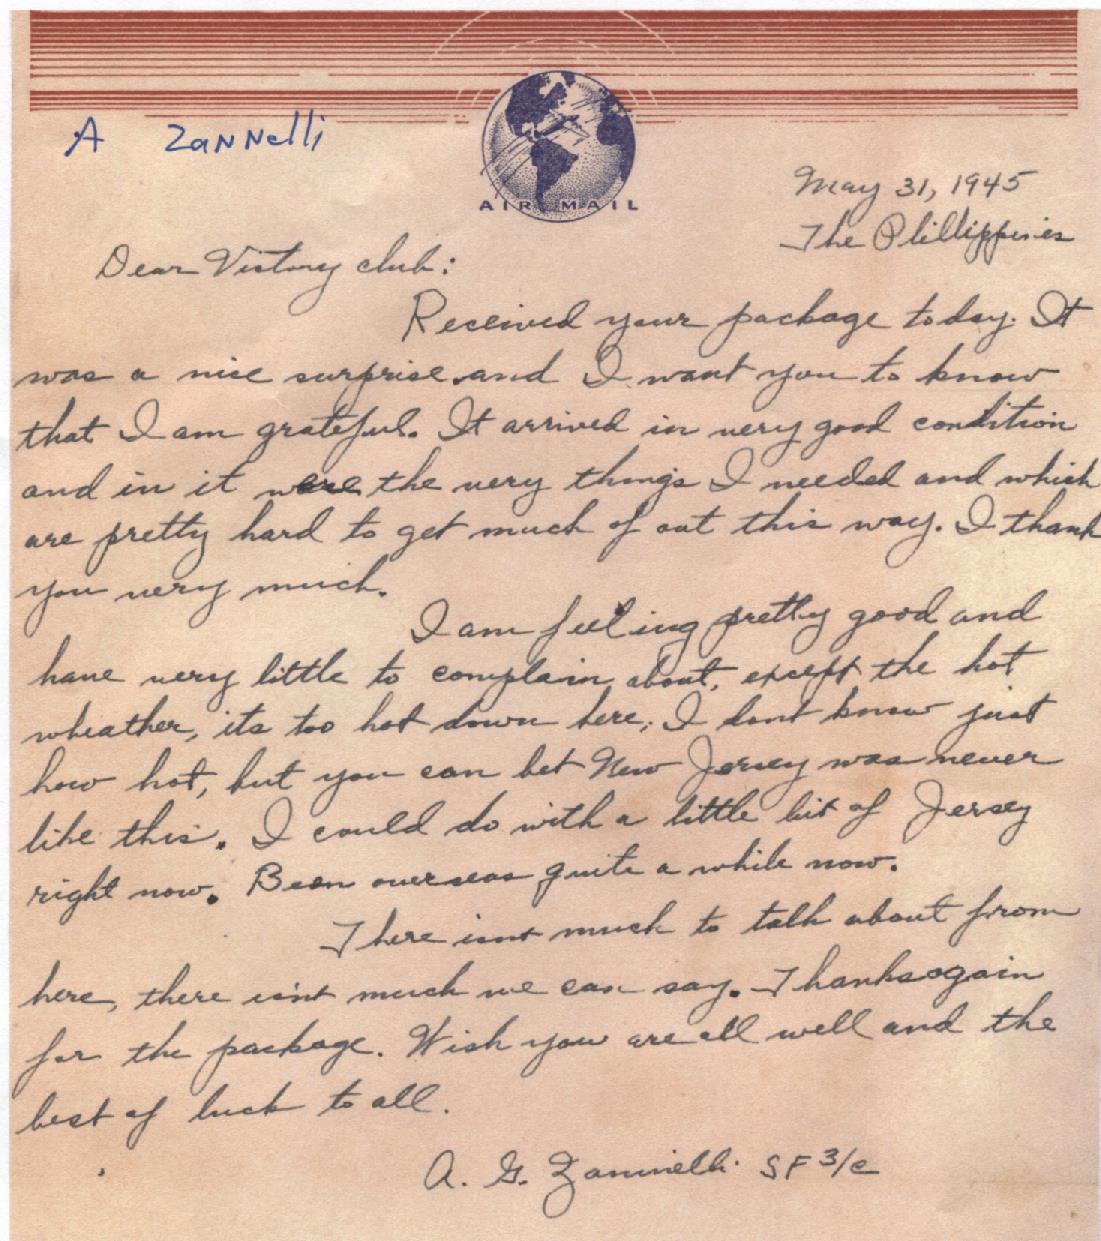 A Zannelli
AIR MAIL
May 31, 1945
The Phillippines
Dear Victory club:
Received your package today. It
was a nice surprise and I want you to know
that I am grateful. It arrived in very good condition
and in it were the very things I needed and which
are pretty hard to get much of out this way. I thank
you very much.
I am feeling pretty good and
have very little to complain about, except the hot
wheather, its too hot down here; I dont know just
how hot, but you can bet New Jersey was never
like this. I could do with a little bit of Jersey
right now. Been overseas quite a while now.
There isnt much to talk about from
here, there isn't much we can say. Thanks again
for the package. Wish you are all well and the
best of luck to all.
A. G. Zaninelli SF 3/c